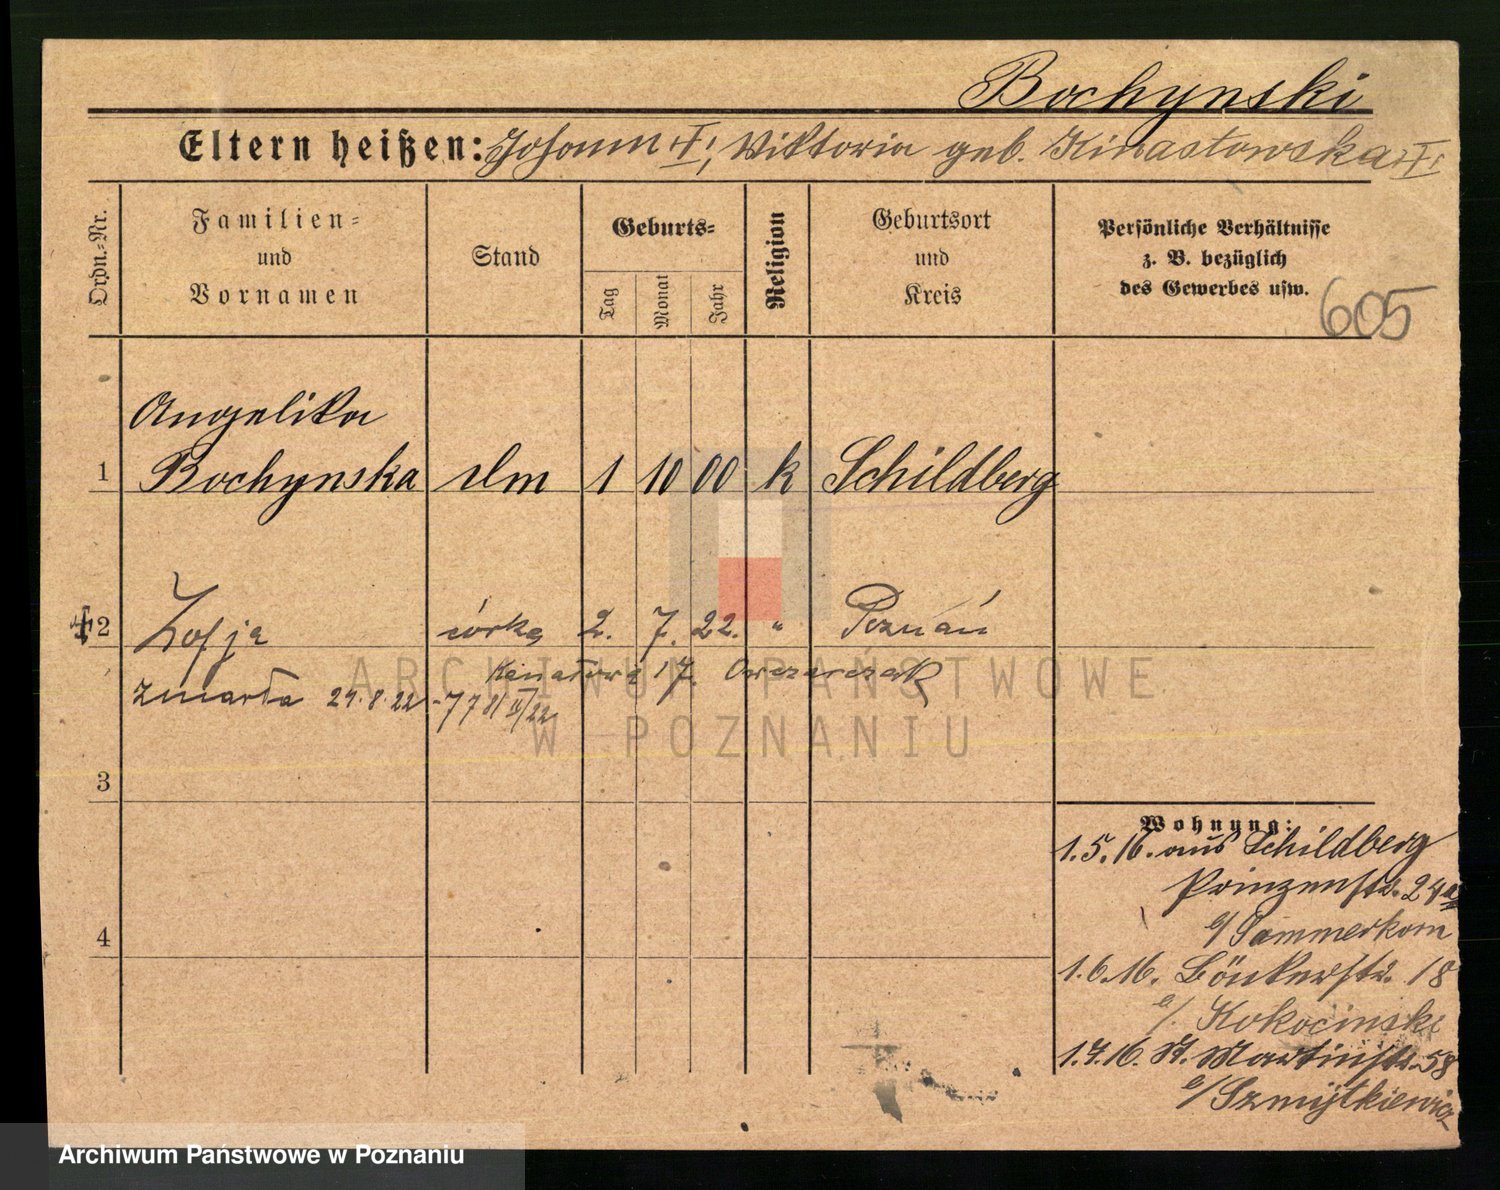 Bochynski
Eltern heißen: Johann †, Viktoria geb. Kinastowska †
Ordn.-Nr.
Familien- und Vornamen
Stand
Geburts-
Tag
Monat
Jahr
Religion
Geburtsort und Kreis
Persönliche Verhältnisse
z. B. bezüglich
des Gewerbes usw.
605
Angelika
1 Bochynska 1 10 00 k Schildberg
†2 Zofja córka 2. 7. 22. " Poznań
17. Owczarczak
zmarła 29.8.22
3
4
Wohnung:
1.5.16. aus Schildberg
Prinzenstr. 24a
b/ Sammerkorn
1.6.16. Bönkerstr. 18
b/ Kokocinski
1.7.16. St. Martinstr. 58
b/ Szmytkiewicz
ARCHIWUM PAŃSTWOWE
W POZNANIU
Archiwum Państwowe w Poznaniu